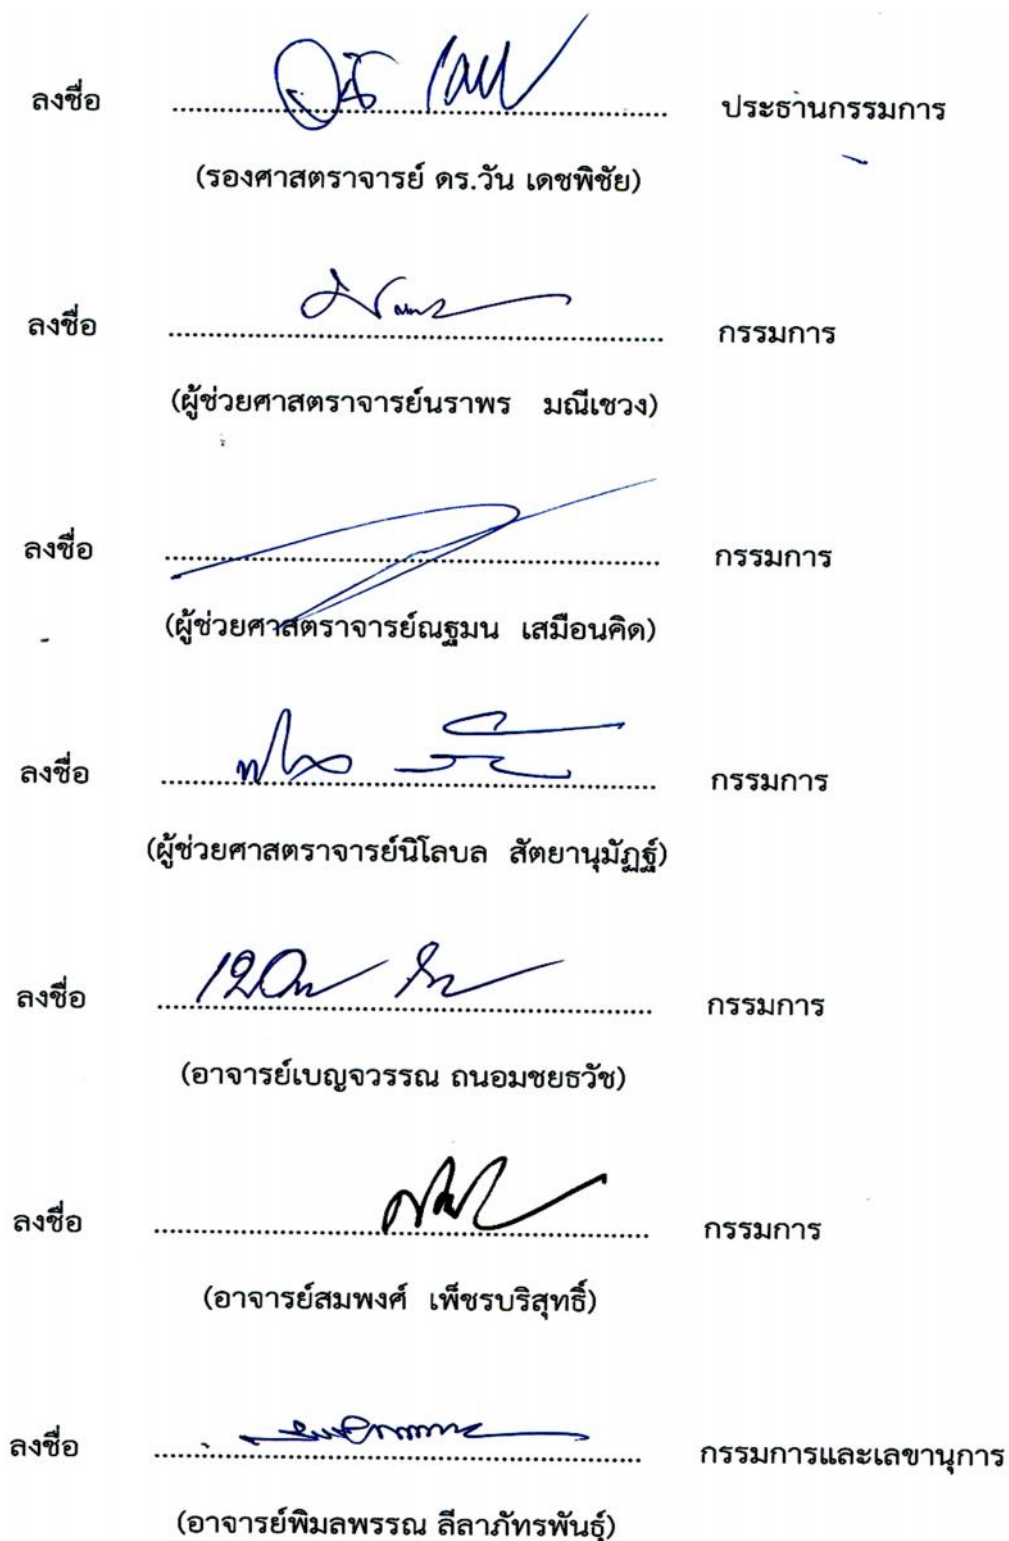 ลงชื่อ ........................................................ ประธานกรรมการ
(รองศาสตราจารย์ ดร.วัน เดชพิชัย)
ลงชื่อ ........................................................ กรรมการ
(ผู้ช่วยศาสตราจารย์นราพร มณีเชวง)
ลงชื่อ ........................................................ กรรมการ
(ผู้ช่วยศาสตราจารย์ณฐมน เสมือนคิด)
ลงชื่อ ........................................................ กรรมการ
(ผู้ช่วยศาสตราจารย์นิโลบล สัตยานุมัฏฐ์)
ลงชื่อ ........................................................ กรรมการ
(อาจารย์เบญจวรรณ ถนอมชยธวัช)
ลงชื่อ ........................................................ กรรมการ
(อาจารย์สมพงศ์ เพ็ชรบริสุทธิ์)
ลงชื่อ ........................................................ กรรมการและเลขานุการ
(อาจารย์พิมลพรรณ ลีลาภัทรพันธุ์)